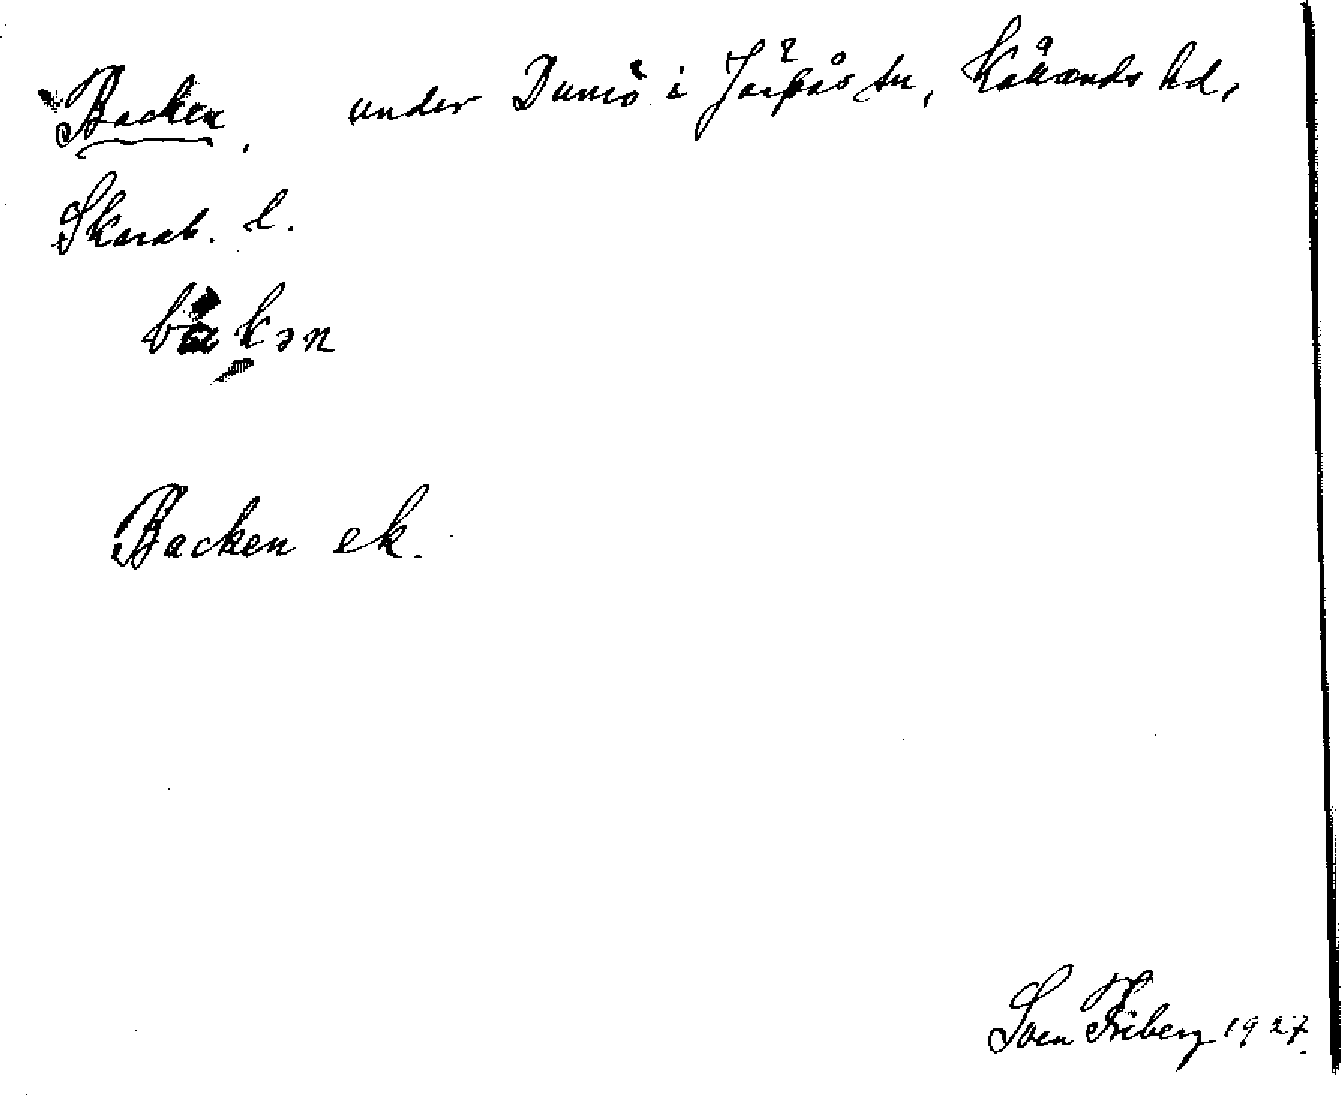 Backen. under Dunö i Järpås sn, Kållands hd,
Skarab. l.
bakən
Backen ek.
Sven Friberg 1927.